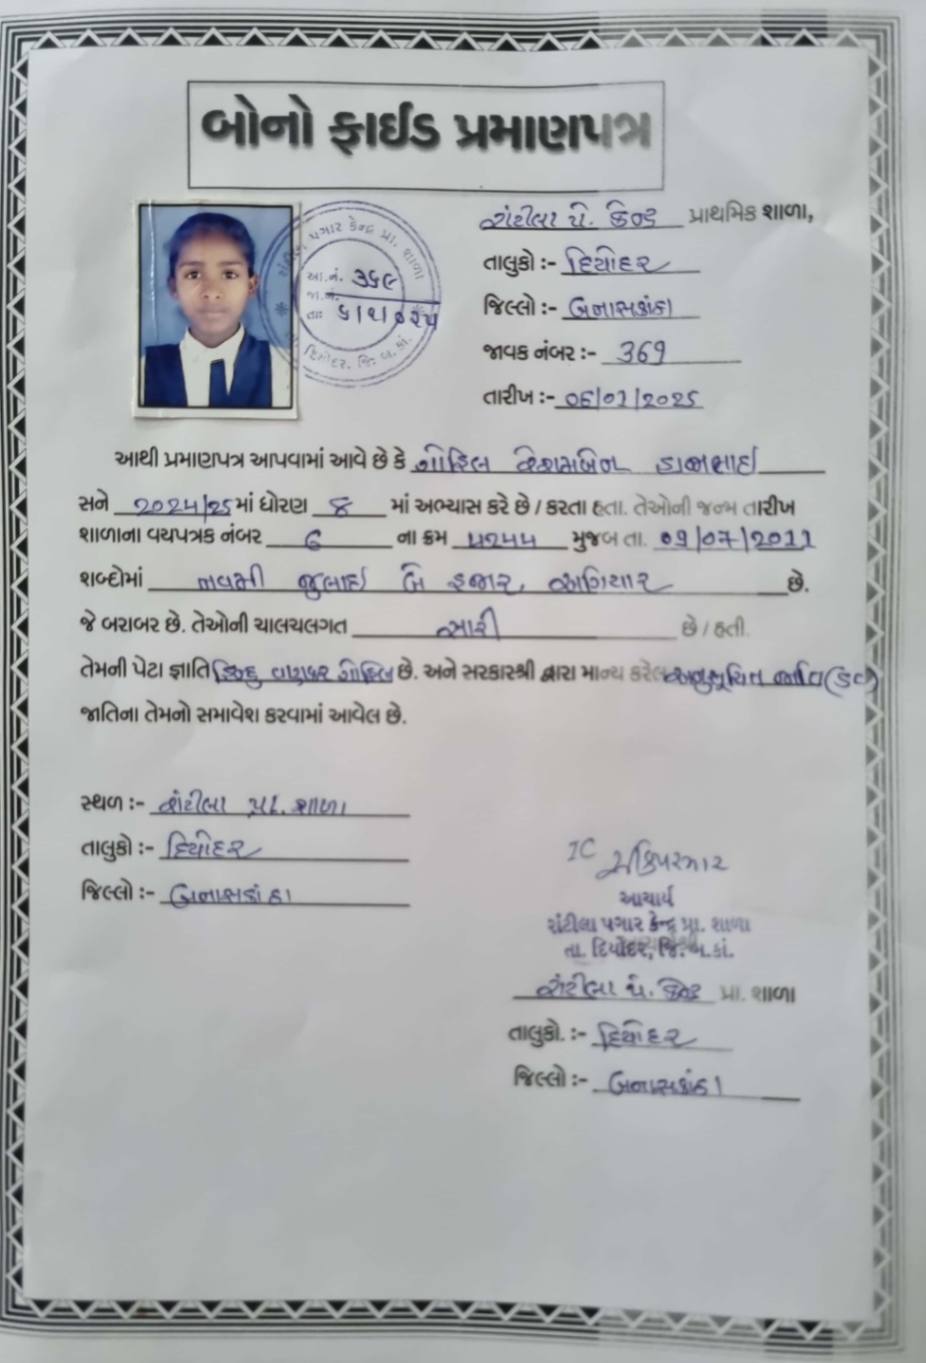 બોનો ફાઈડ પ્રમાણપત્ર
રાંટીલા પે. કેન્દ્ર પ્રાથમિક શાળા,
તાલુકો :- દિયોદર
જિલ્લો :- બનાસકાંઠા
જાવક નંબર :- 369
તારીખ :- 06/01/2025
રાંટીલા પગાર કેન્દ્ર પ્રા. શાળા
આ.નં. ૩૬૯
જા.નં.
તા: ૬/૧/૦૨૫
દિયોદર, જિ. બ.કાં.
આથી પ્રમાણપત્ર આપવામાં આવે છે કે ગોહિલ
સને 2024/25 માં ધોરણ 8 માં અભ્યાસ કરે છે / કરતા હતા. તેઓની જન્મ તારીખ
શાળાના વયપત્રક નંબર 6 ના ક્રમ ૫૨૫૫ મુજબ તા. 09/07/2011
શબ્દોમાં નવમી જુલાઇ બે હજાર, અગિયાર છે.
જે બરાબર છે. તેઓની ચાલચલગત સારી છે / હતી.
તેમની પેટા જ્ઞાતિ હિન્દુ વણકર ગોહિલ છે. અને સરકારશ્રી દ્વારા માન્ય કરેલ અનુસૂચિત જાતિ
જાતિના તેમનો સમાવેશ કરવામાં આવેલ છે.
સ્થળ :- રાંટીલા પ્રા. શાળા
તાલુકો :- દિયોદર
જિલ્લો :- બનાસકાંઠા
IC
આચાર્ય
રાંટીલા પગાર કેન્દ્ર પ્રા. શાળા
તા. દિયોદર, જિ. બ.કાં.
રાંટીલા પે. કેન્દ્ર પ્રા. શાળા
તાલુકો. :- દિયોદર
જિલ્લો :- બનાસકાંઠા